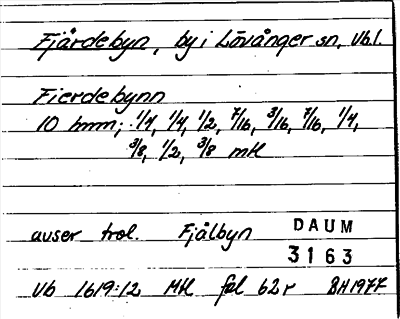 Fjärdebyn, by i Lövånger sn, Vb.l.
Fierdebynn
10 hmm; 1/4, 1/4, 1/2, 7/16, 3/16, 7/16, 1/4,
3/8, 1/2, 3/8 mtl
avser trol. Fjälbyn
DAUM
3163
Vb 1619:12 Mtl fol 62r BH1977